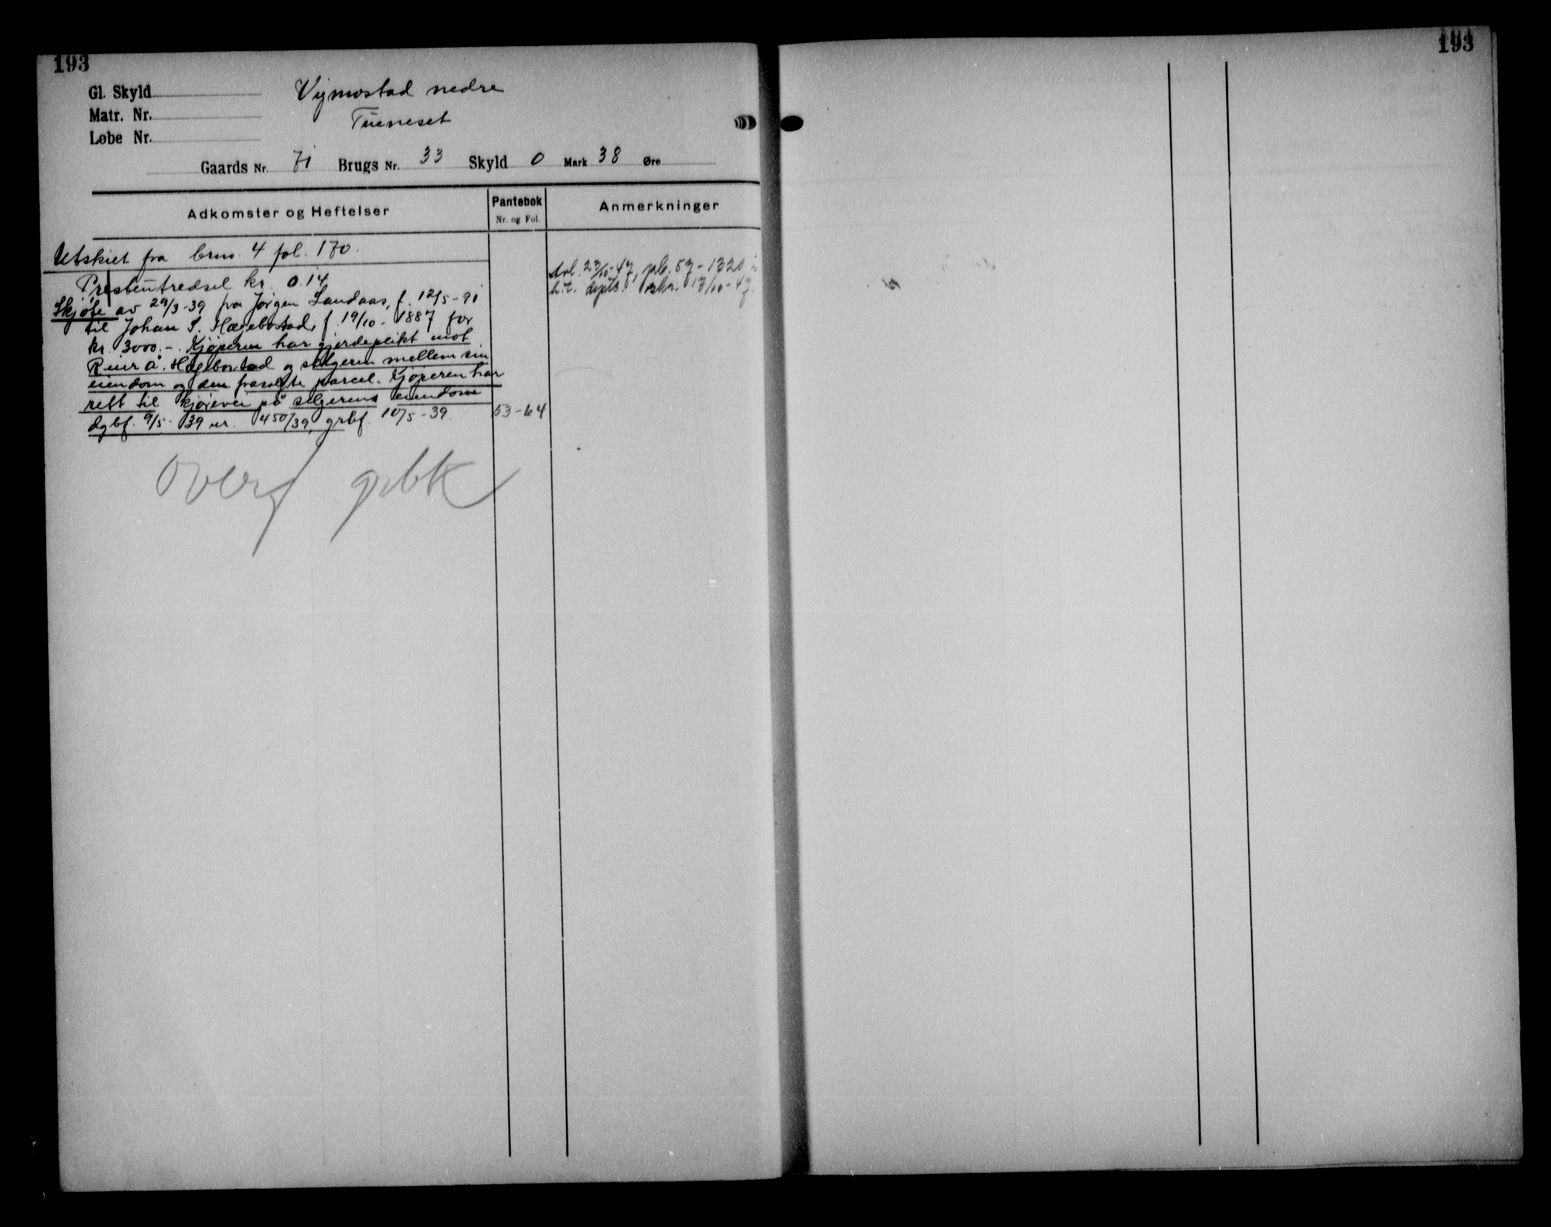 193
Gl. Skyld
Matr. Nr.
Løbe Nr.
Vigmostad nedre
Tueneset
Gaards Nr. 71 Brugs Nr. 33 Skyld 0 Mark 38 Øre
Adkomster og Heftelser
Pantebok
Nr. og Fol.
Anmerkninger
Utskiet fra brno 4 fol. 170.
Prestentredsel kr. 0.14
Skjøte av 29/3-39 fra Jørgen Landaas, f. 12/5-91
til Johan S. Hægebostad, f 19/10-1887 for
kr. 3000.-. Kjøperen har gjerdeplikt mot
Reier A. Hægebostad og selgeren mellem sin
eiendom og den frasolgte parcel. Kjøperen har
rett til kjørevei på selgerens eiendom
dgbf. 9/5-39 nr. 450/39, grbf. 10/5-39. 53-64
23/10-47, pb. 57-1320
13/10-47
Overf grbk
193